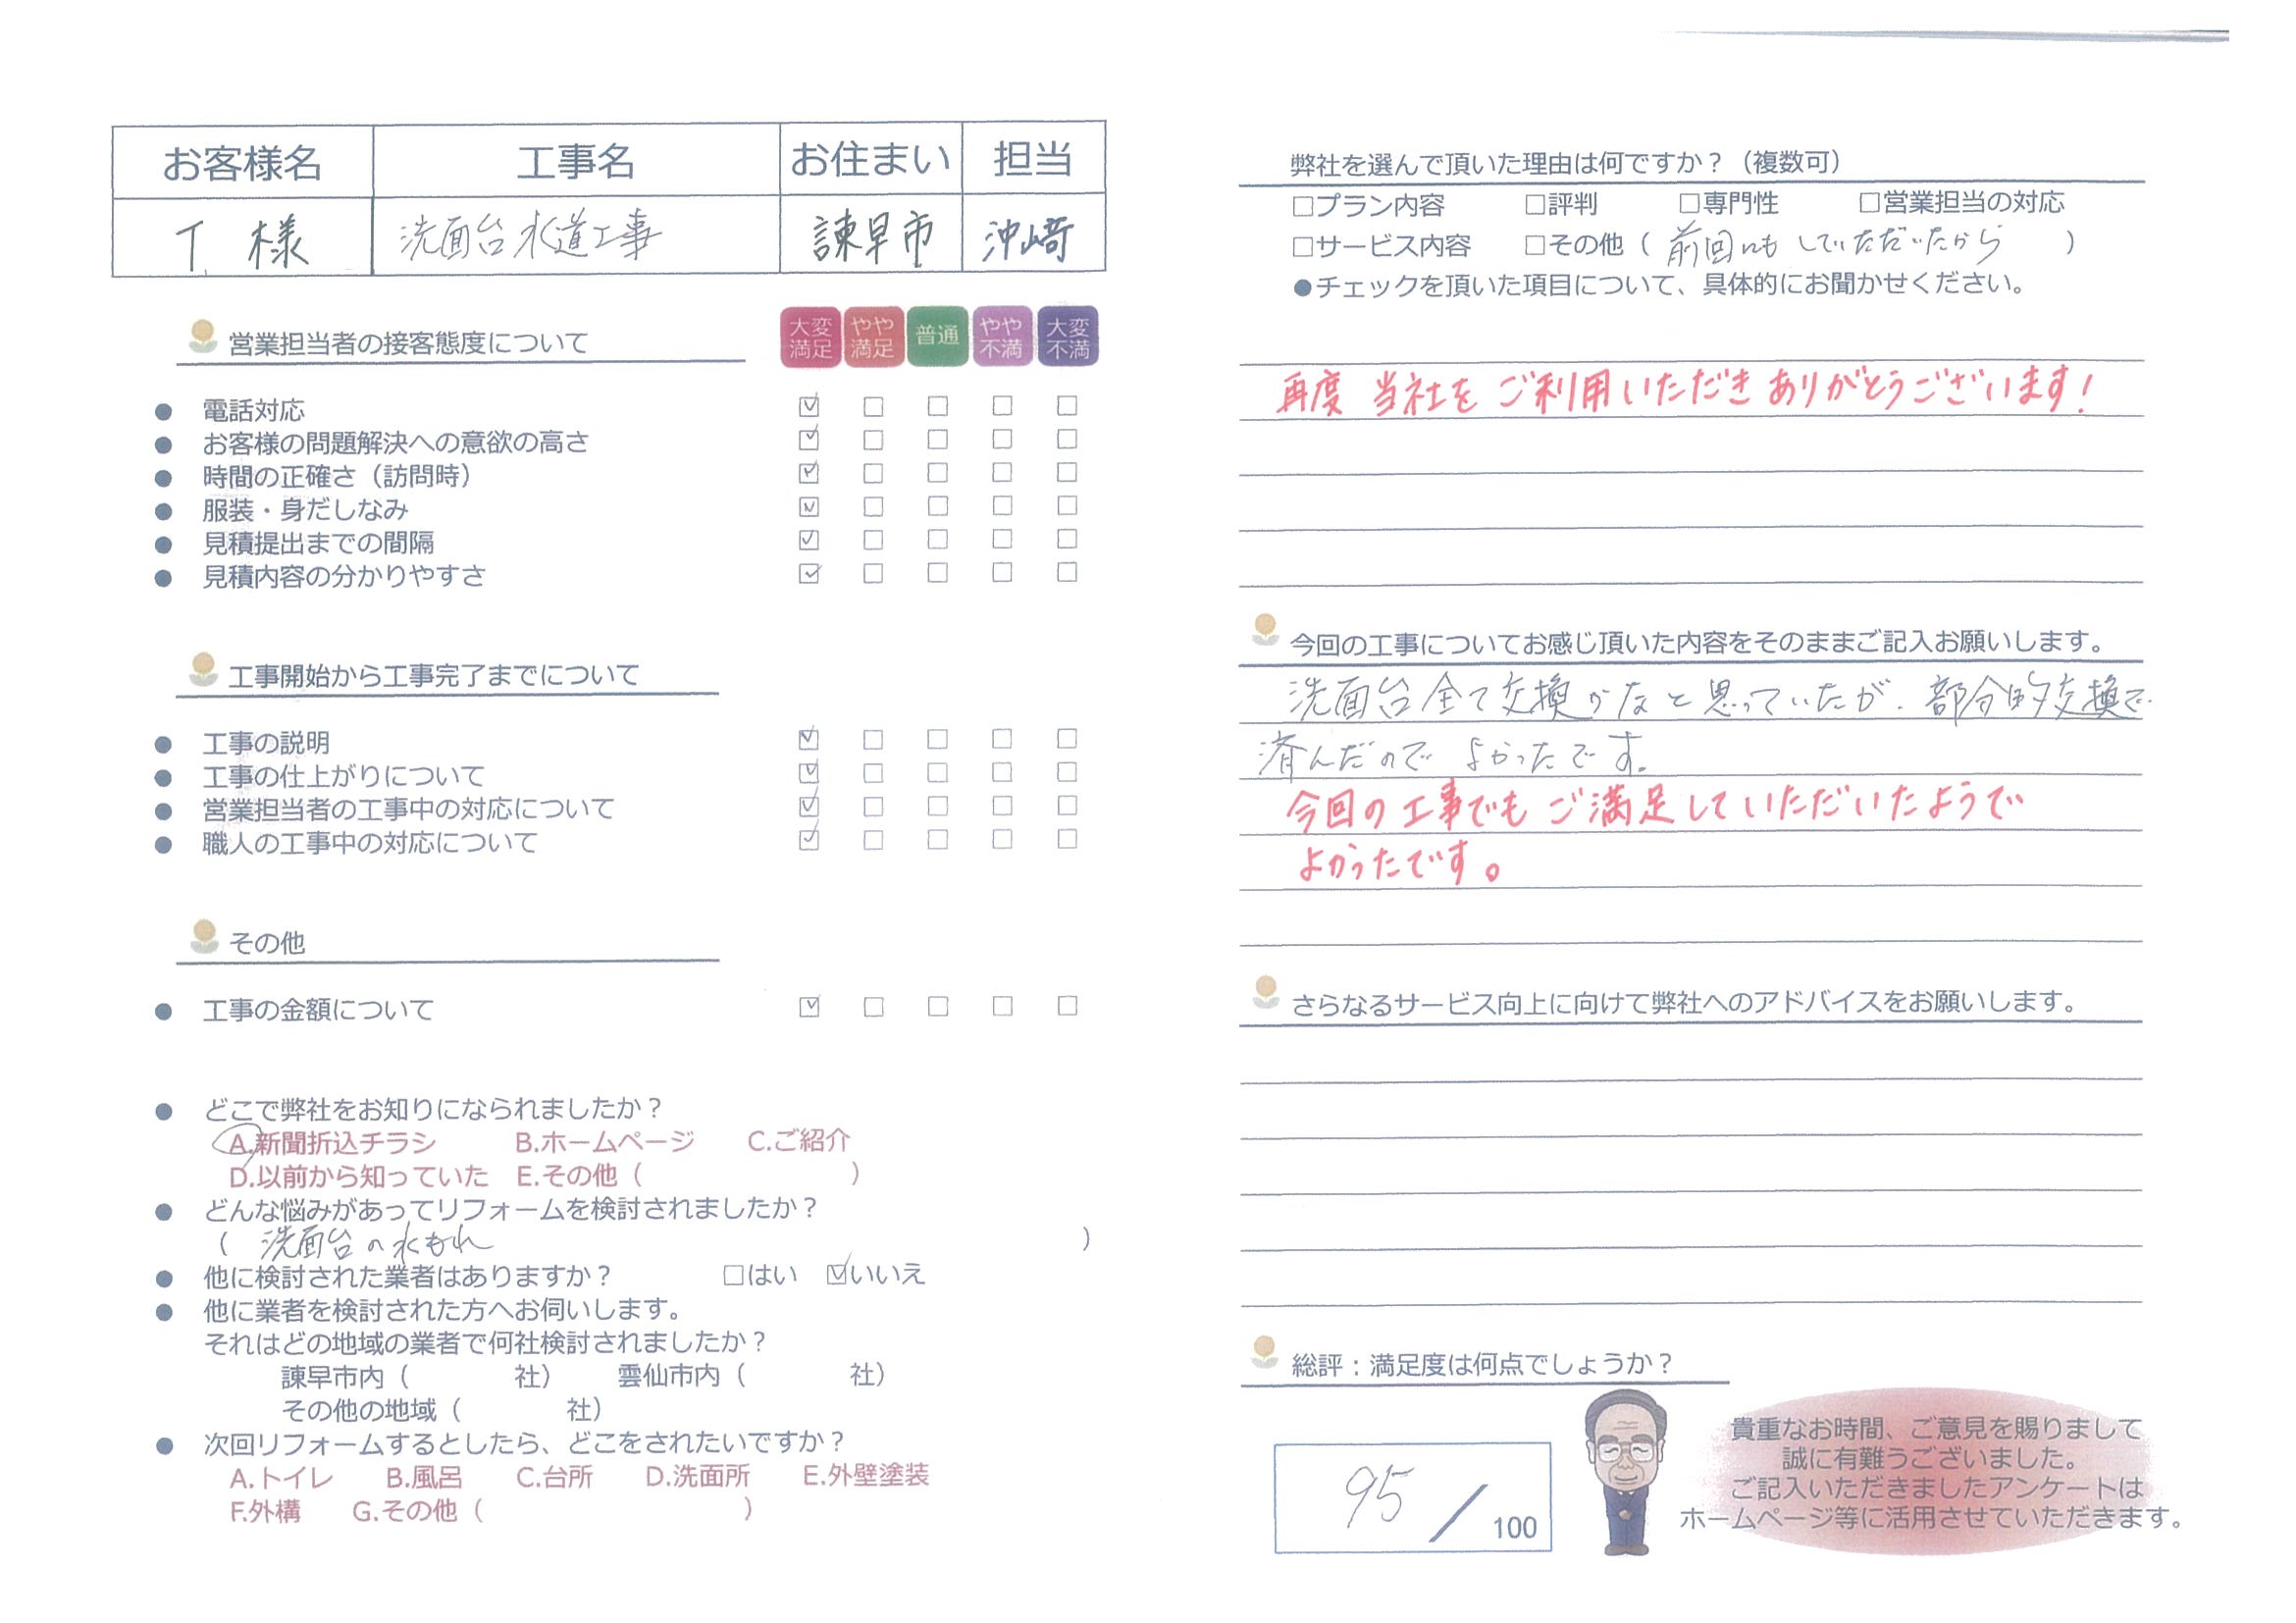 お客様名 工事名 お住まい 担当
T 様 洗面台水道工事 諫早市 沖崎
営業担当者の接客態度について
大変満足 やや満足 普通 やや不満 大変不満
● 電話対応 ☑ □ □ □ □
● お客様の問題解決への意欲の高さ ☑ □ □ □ □
● 時間の正確さ（訪問時） ☑ □ □ □ □
● 服装・身だしなみ ☑ □ □ □ □
● 見積提出までの間隔 ☑ □ □ □ □
● 見積内容の分かりやすさ ☑ □ □ □ □
工事開始から工事完了までについて
● 工事の説明 ☑ □ □ □ □
● 工事の仕上がりについて ☑ □ □ □ □
● 営業担当者の工事中の対応について ☑ □ □ □ □
● 職人の工事中の対応について ☑ □ □ □ □
その他
● 工事の金額について ☑ □ □ □ □
● どこで弊社をお知りになられましたか？
A.新聞折込チラシ B.ホームページ C.ご紹介
D.以前から知っていた E.その他（ ）
● どんな悩みがあってリフォームを検討されましたか？
（ 洗面台の水もれ ）
● 他に検討された業者はありますか？ □はい ☑いいえ
● 他に業者を検討された方へお伺いします。
それはどの地域の業者で何社検討されましたか？
諫早市内（ 社） 雲仙市内（ 社）
その他の地域（ 社）
● 次回リフォームするとしたら、どこをされたいですか？
A.トイレ B.風呂 C.台所 D.洗面所 E.外壁塗装
F.外構 G.その他（ ）
弊社を選んで頂いた理由は何ですか？（複数可）
□プラン内容 □評判 □専門性 □営業担当の対応
□サービス内容 □その他（ 前回にもしていただいたから ）
●チェックを頂いた項目について、具体的にお聞かせください。
再度 当社をご利用いただきありがとうございます！
今回の工事についてお感じ頂いた内容をそのままご記入お願いします。
洗面台全て交換かなと思っていたが、部分的交換で
済んだのでよかったです。
今回の工事でもご満足していただいたようで
よかったです。
さらなるサービス向上に向けて弊社へのアドバイスをお願いします。
総評：満足度は何点でしょうか？
95／100
貴重なお時間、ご意見を賜りまして
誠に有難うございました。
ご記入いただきましたアンケートは
ホームページ等に活用させていただきます。